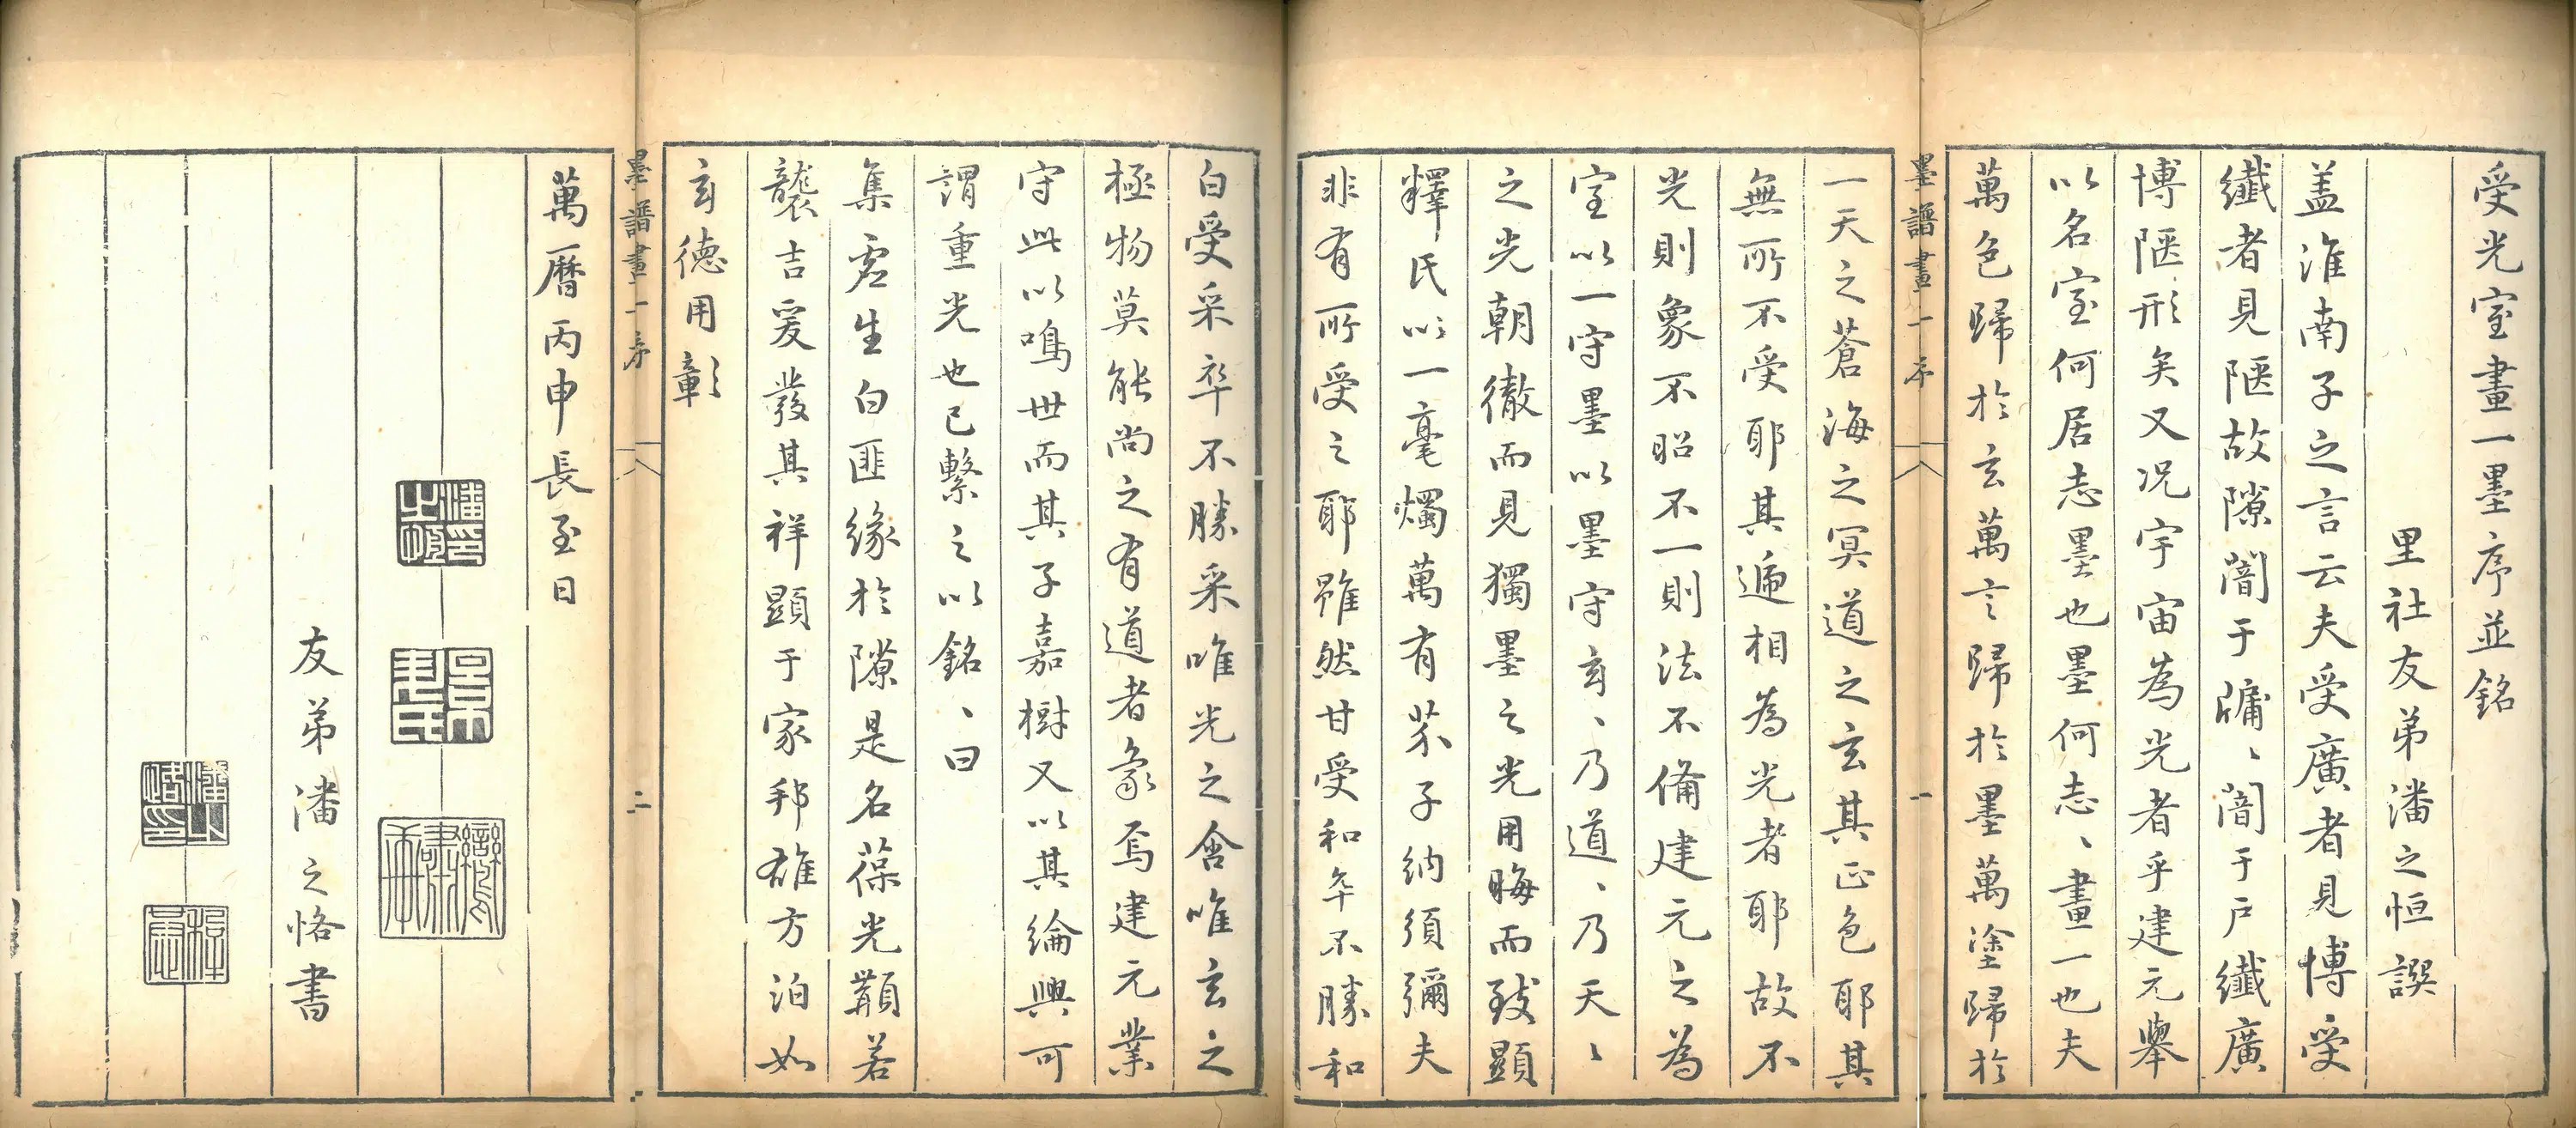 受光室畫一墨序並銘
里社友弟潘之恒譔
盖淮南子之言云夫受廣者見博受
纖者見陋故隙闇于牖、闇于戶纖廣
博陋形矣又況宇宙為光者乎建元舉
以名室何居志墨也墨何志、畫一也夫
萬色歸於玄萬言歸於墨萬塗歸於
墨譜畫一序
一
一天之蒼海之冥道之玄其正色耶其
無所不受耶其遞相為光者耶故不
光則象不昭不一則法不備建元之為
室以一守墨以墨守玄、乃道、乃天、
之光朝徹而見獨墨之光用晦而致顯
釋氏以一毫燭萬有芥子納須彌夫
非有所受之耶雖然甘受和卒不勝和
白受采卒不勝采唯光之舍唯玄之
極物莫能尚之有道者象焉建元業
守此以鳴世而其子嘉樹又以其綸興可
謂重光也已繫之以銘、曰
集虛生白匪緣於隙是名葆光顜若
襲吉爰發其祥顯于家邦雄方泊如
玄德用彰
墨譜畫一序
二
萬曆丙申長至日
友弟潘之恪書